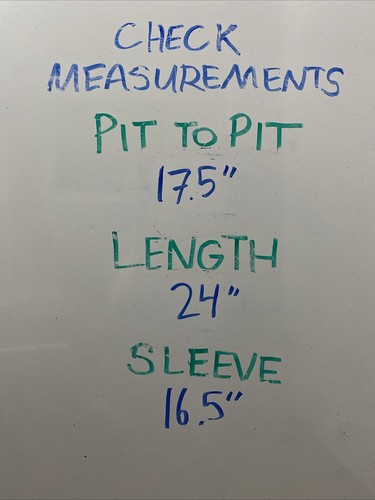 CHECK
MEASUREMENTS
PIT TO PIT
17.5"
LENGTH
24"
SLEEVE
16.5"